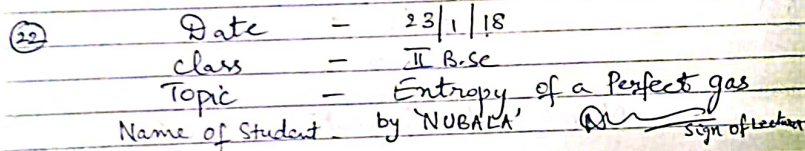 22 Date - 23/1/18
class - II B.Sc
Topic - Entropy of a Perfect gas
Name of Student - by 'NUBALA' Sign of Lecture